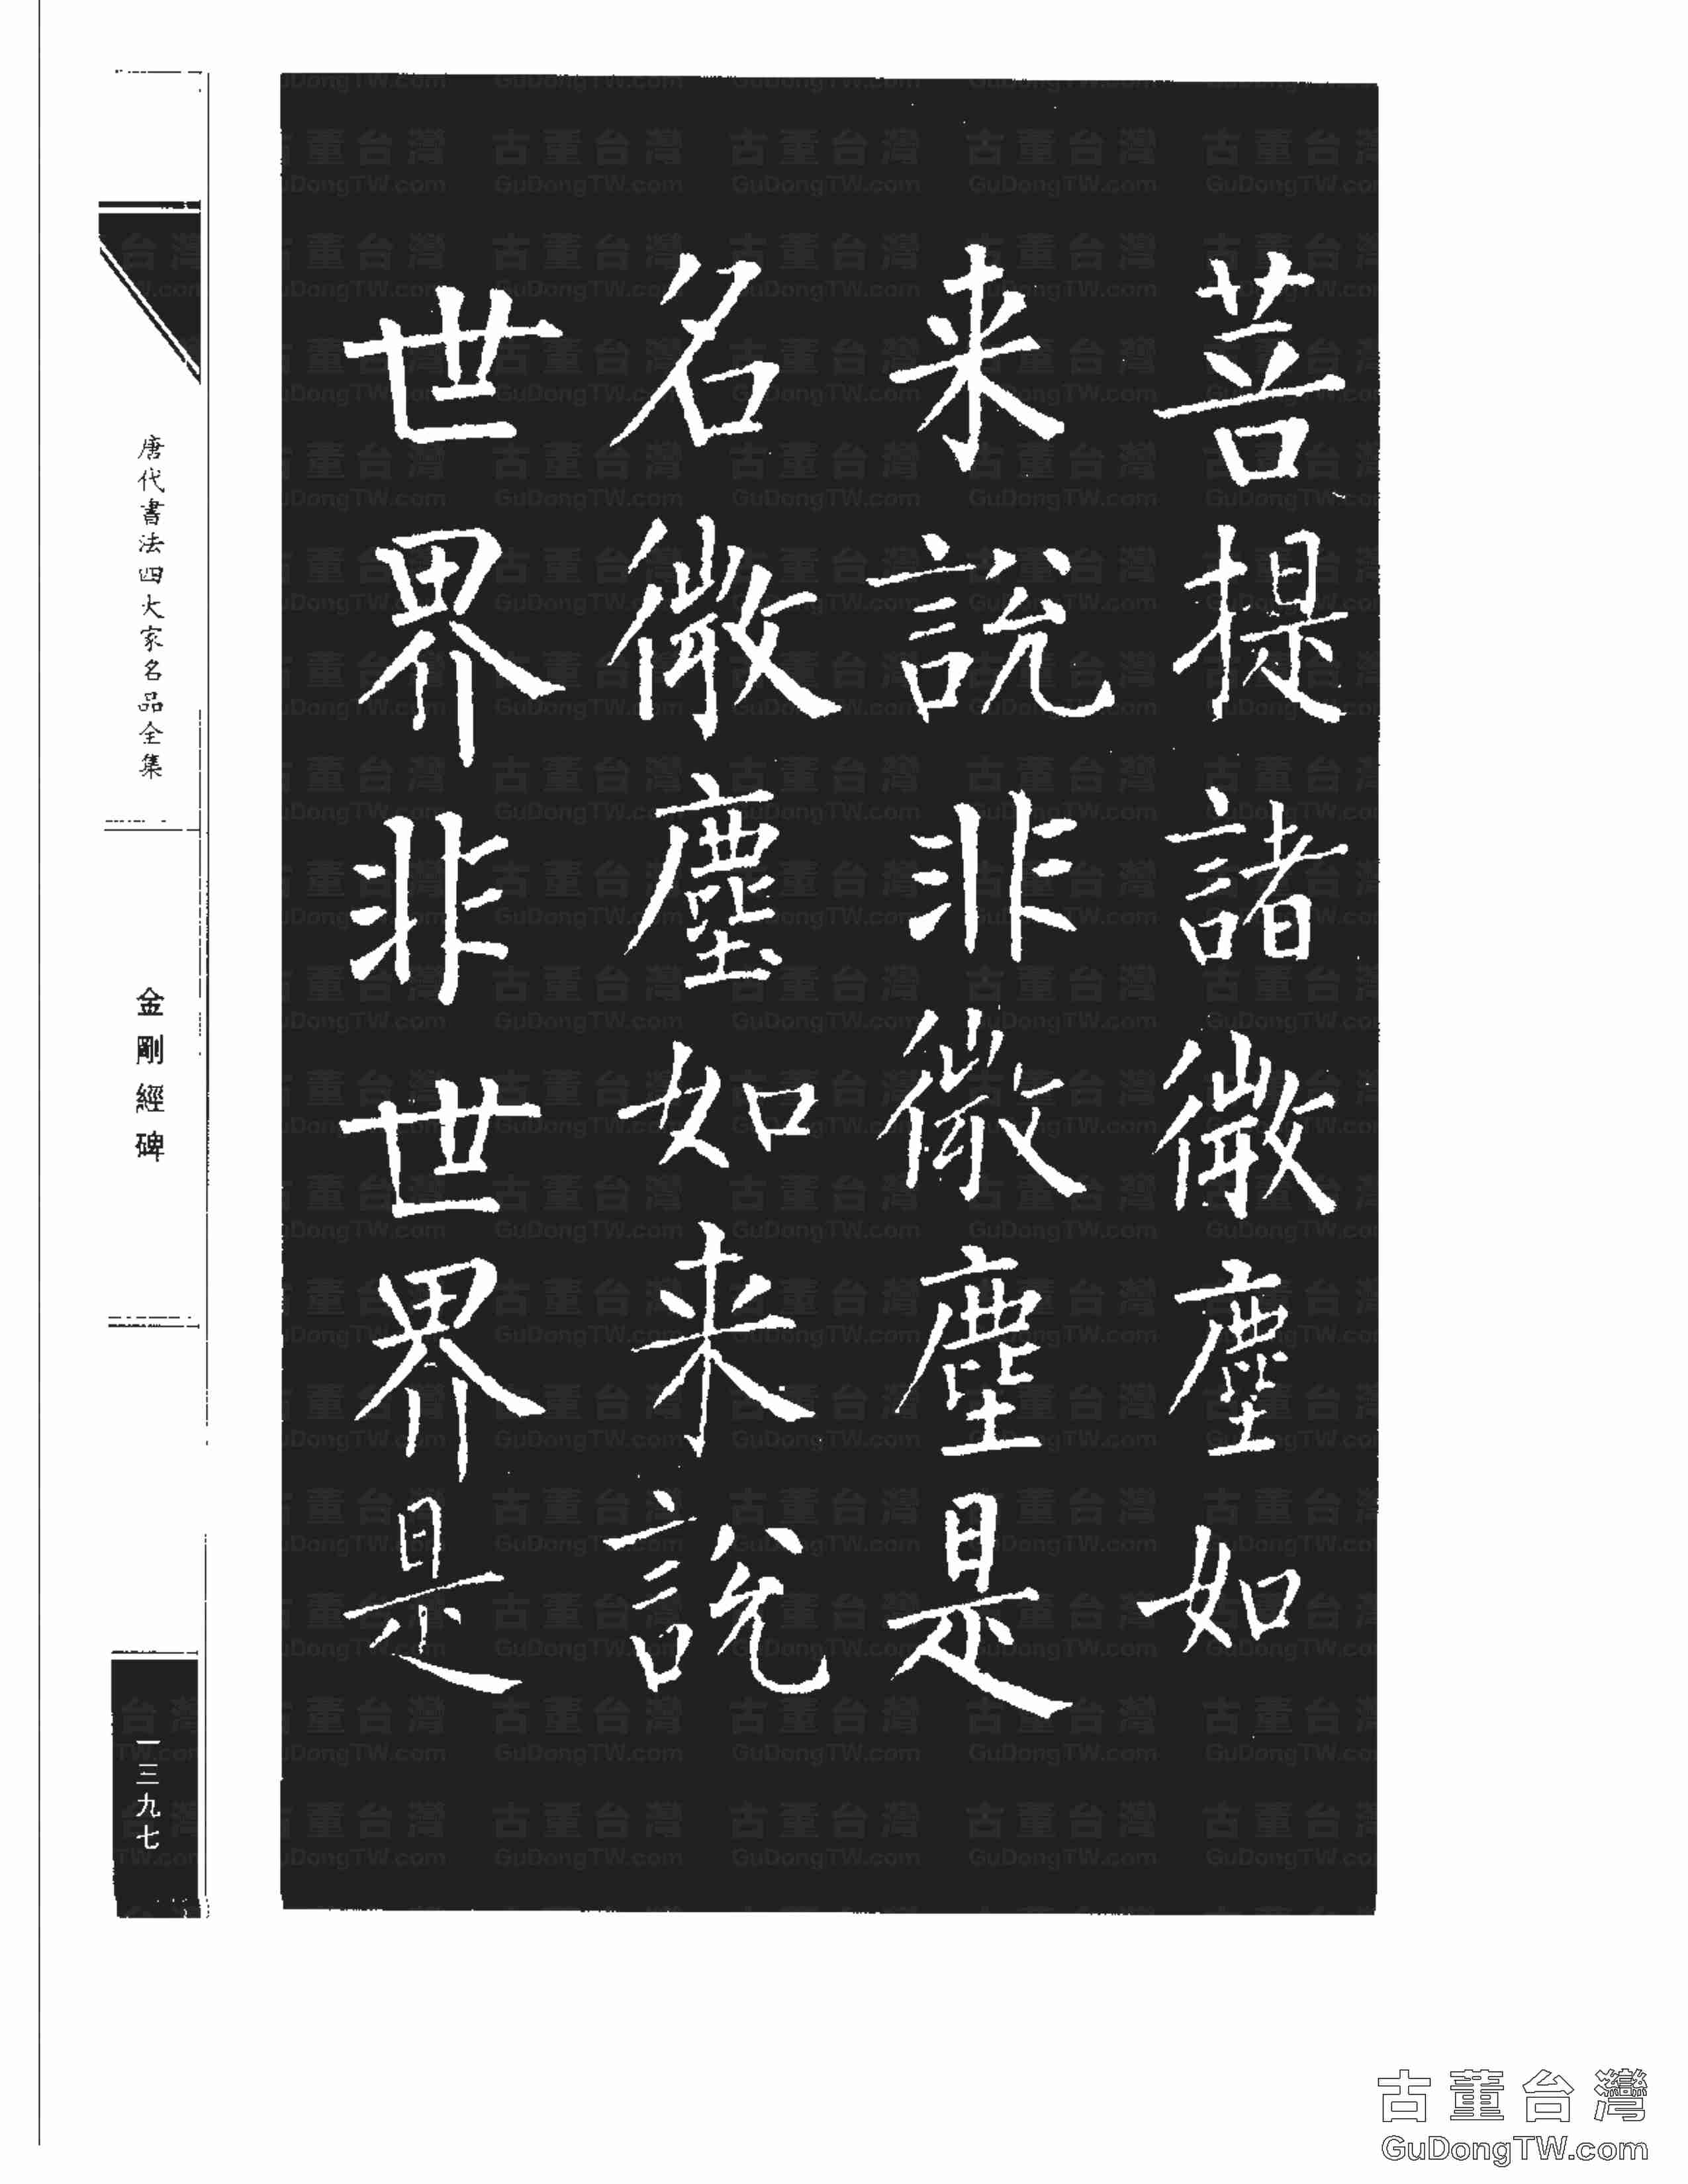 菩提諸微塵如
来說非微塵是
名微塵如来說
世界非世界是
唐代書法四大家名品全集
金剛經碑
一三九七
古董台灣
GuDongTW.com